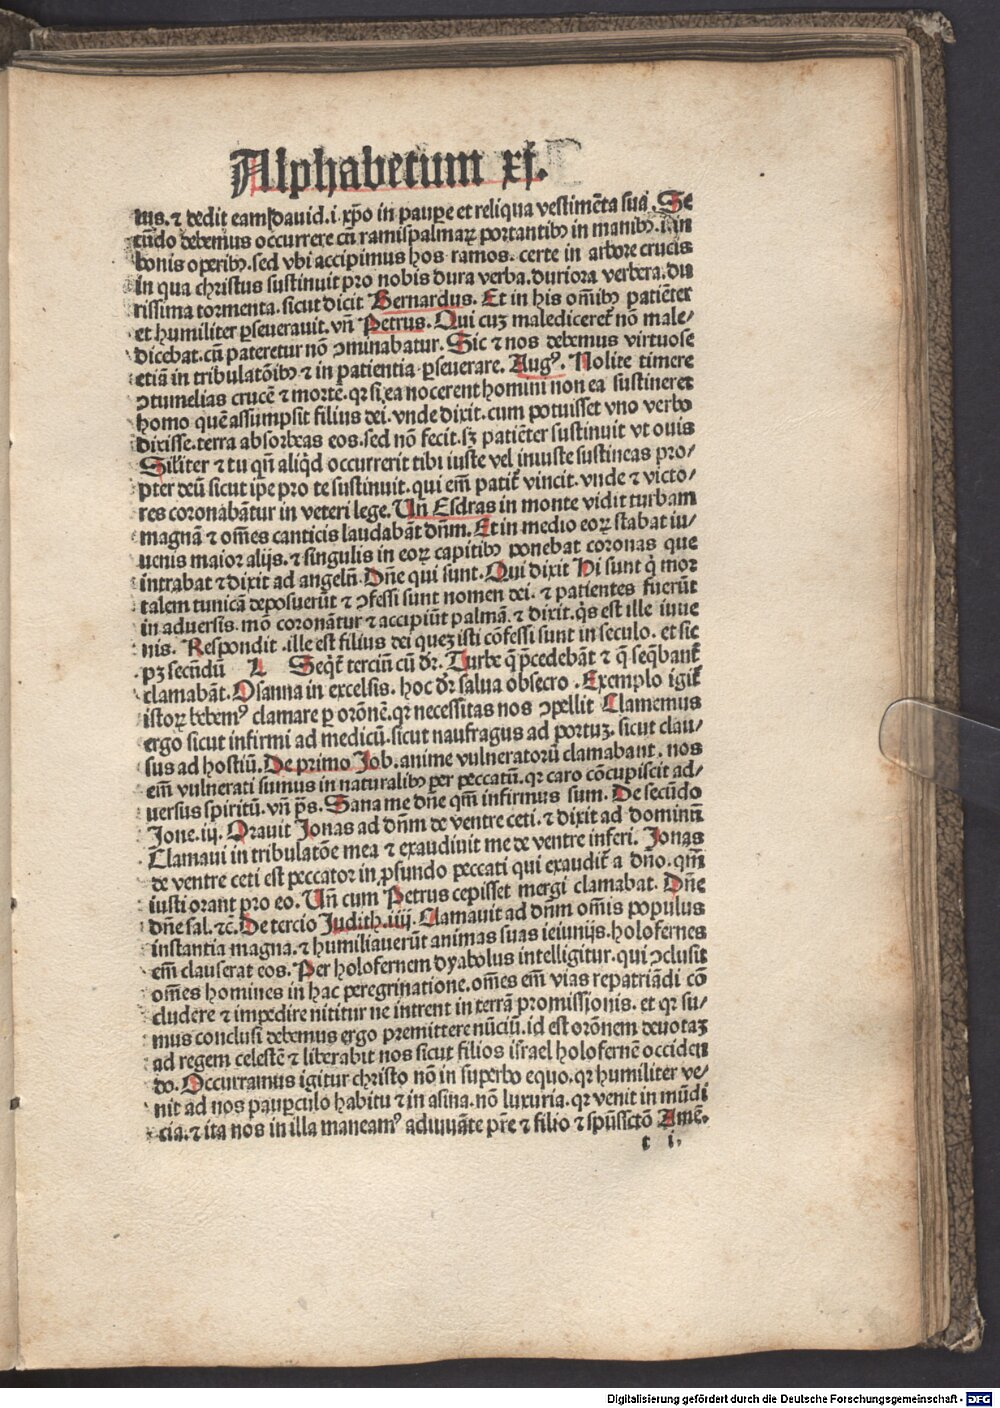 Alphabetum xj.
tus. ⁊ dedit eam dauid. i. xp̄o in paupe et reliqua vestimēta sua. Se
cūdo debemus occurrere cū ramis palmaꝝ portantibꝰ in manibꝰ. i. in
bonis operibꝰ. sed vbi accipimus hos ramos. certe in arbore crucis
in qua christus sustinuit pro nobis dura verba. duriora verbera. du
rissima tormenta. sicut dicit Bernardus. Et in his om̄ibꝰ patiēter
et humiliter ꝑseuerauit. vn̄ Petrus. Qui cuꝫ malediceret̄ nō male/
dicebat. cū pateretur nō ꝯminabatur. Sic ⁊ nos debemus virtuose
etiā in tribulatōibꝰ ⁊ in patientia ꝑseuerare. Augꝰ. Nolite timere
ꝯtumelias crucē ⁊ mortē. qꝛ si ea nocerent homini non ea sustineret
homo quē assumpsit filius dei. vnde dixit. cum potuisset vno verbo
dixisse. terra absorbeas eos. sed nō fecit. sꝫ patiēter sustinuit vt ouis
Siliter ⁊ tu qn̄ aliqd̓ occurrerit tibi iuste vel iniuste sustineas pro/
pter deū sicut ip̄e pro te sustinuit. qui em̄ patit̄ vincit. vnde ⁊ victo/
res coronabātur in veteri lege. Vn̄ Esdras in monte vidit turbam
magnā ⁊ om̄es canticis laudabāt dn̄m. Et in medio eoꝝ stabat iu/
uenis maior alijs. ⁊ singulis in eoꝝ capitibꝰ ponebat coronas que
intrabat ⁊ dixit ad angelū. Dn̄e qui sunt. Qui dixit Hi sunt q̇ mor
talem tunicā deposuerūt ⁊ ꝯfessi sunt nomen dei. ⁊ patientes fuerūt
in aduersis. mō coronātur ⁊ accipiūt palmā. ⁊ dixit. q̇s est ille iuue
nis. Respondit. ille est filius dei queꝫ isti cōfessi sunt in seculo. et sic
pꝫ secūdū L Seqt̄ terciū cū dr̄. Turbe q̄ p̄cedebāt ⁊ q̄ seq̄bant̄
clamabāt. Osanna in excelsis. hoc dr̄ salua obsecro. Exemplo igit̄
istoꝝ debemꝰ clamare ꝑ orōnē. qꝛ necessitas nos ꝯpellit Clamemus
ergo sicut infirmi ad medicū. sicut naufragus ad portuꝫ. sicut clau/
sus ad hostiū. De primo Job. anime vulneratorū clamabant. nos
em̄ vulnerati sumus in naturalibꝰ per peccatū. qꝛ caro cōcupiscit ad/
uersus spiritū. vn̄ p̄s. Sana me dn̄e qm̄ infirmus sum. De secūdo
Jone. iij. Orauit Jonas ad dn̄m de ventre ceti. ⁊ dixit ad dominū
Clamaui in tribulatōe mea ⁊ exaudiuit me de ventre inferi. Jonas
de ventre ceti est peccator in ꝓfundo peccati qui exaudit̄ a dn̄o. qm̄
iusti orant pro eo. Vn̄ cum Petrus cepisset mergi clamabat. Dn̄e
dn̄e sal. ⁊c̄. De tercio Judith. iiij. Clamauit ad dn̄m om̄is populus
instantia magna. ⁊ humiliauerūt animas suas ieiunijs. holofernes
em̄ clauserat eos. Per holofernem dyabolus intelligitur. qui ꝯclusit
om̄es homines in hac peregrinatione. om̄es em̄ vias repatriādi cō
cludere ⁊ impedire nititur ne intrent in terrā promissionis. et qꝛ su/
mus conclusi debemus ergo premittere nūciū. id est orōnem deuotaꝫ
ad regem celestē ⁊ liberabit nos sicut filios israel holofernē occiden
do. Occurramus igitur christo nō in superbo equo. qꝛ humiliter ve/
nit ad nos pauꝑculo habitu ⁊ in asina. nō luxuria. qꝛ venit in mūdi
cia. ⁊ ita nos in illa maneamꝰ adiuuāte pr̄e ⁊ filio ⁊ spūsctō Amē.
c i.
Digitalisierung gefördert durch die Deutsche Forschungsgemeinschaft - DFG